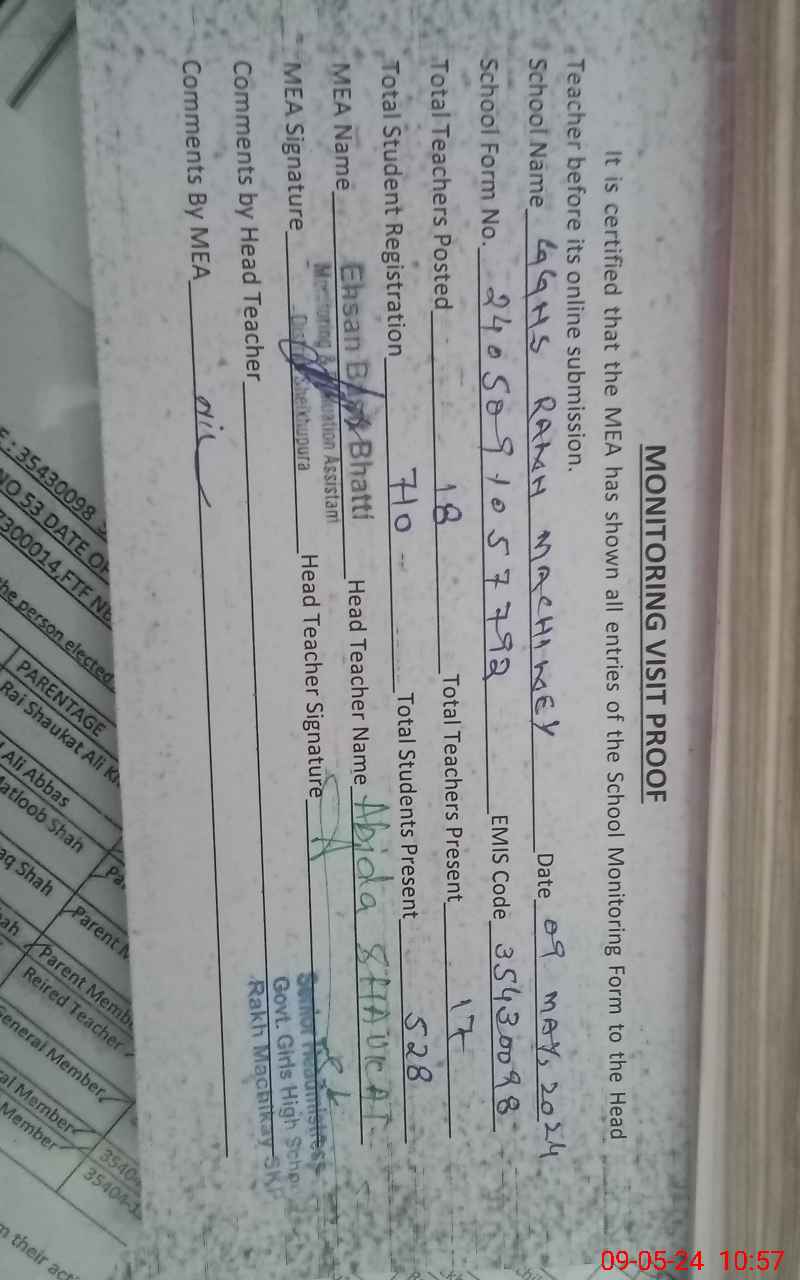 MONITORING VISIT PROOF
It is certified that the MEA has shown all entries of the School Monitoring Form to the Head
Teacher before its online submission.
School Name GGHS RAKH MACHIKEY Date 09 MAY, 2024
School Form No. 2405091057792 EMIS Code 35430098
Total Teachers Posted 18 Total Teachers Present 17
Total Student Registration 710 Total Students Present 528
MEA Name Ehsan Bhatti Head Teacher Name Abida SHAUKAT
Monitoring & Assistant
MEA Signature Sheikhupura Head Teacher Signature
Senior Headmistress
Govt. Girls High School
Comments by Head Teacher Rakh Machikay SKP
Comments By MEA nil
: 35430098
NO 53 DATE OF
7300014,FTF
the person elected
PARENTAGE
Rai Shaukat Ali
Ali Abbas
Matloob Shah
Shah
Parent
Parent Memb
Reired Teacher
General Member
Member
Member
3540
35404-1
their
09-05-24 10:57